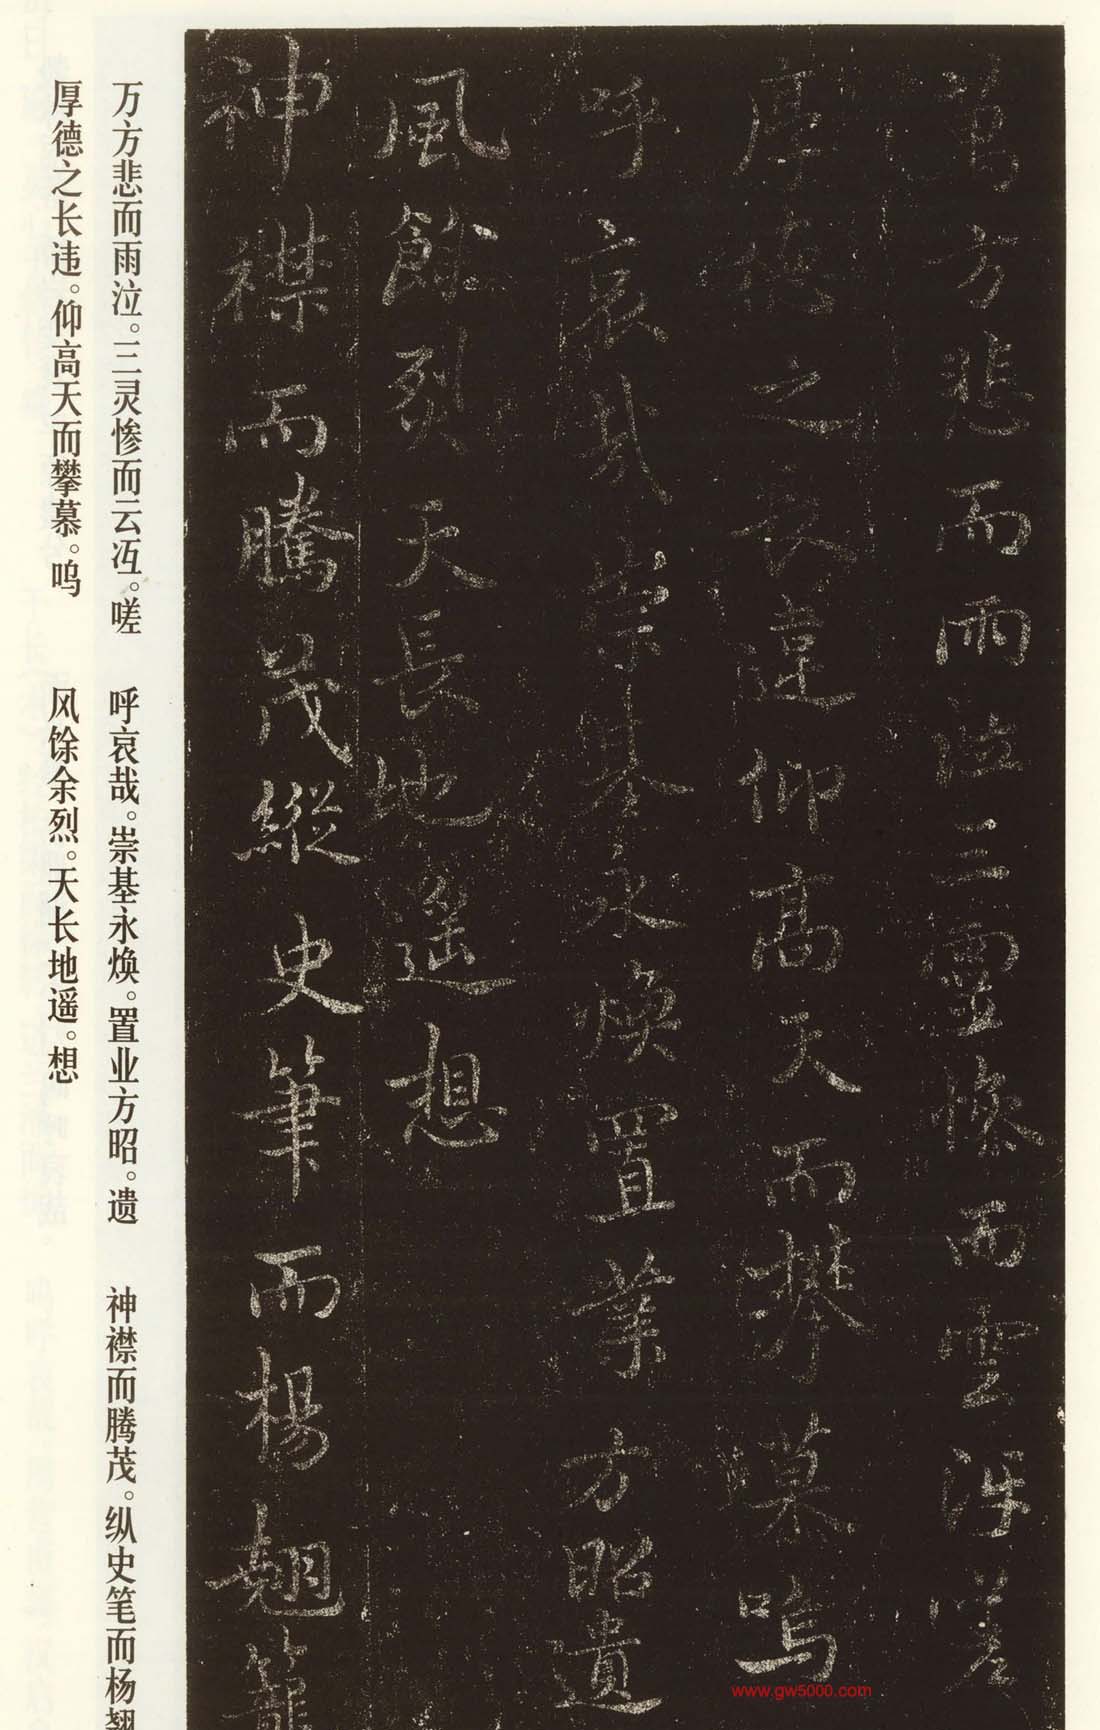 萬方悲而雨泣三靈慘而雲沍嗟
厚德之長違仰高天而攀慕嗚
呼哀哉崇基永煥置業方昭遺
風餘烈天長地遙想
神襟而騰茂縱史筆而楊翹籠
万方悲而雨泣。三灵惨而云冱。嗟
厚德之长违。仰高天而攀慕。呜
呼哀哉。崇基永焕。置业方昭。遗
风馀余烈。天长地遥。想
神襟而腾茂。纵史笔而杨翘
www.gw5000.com